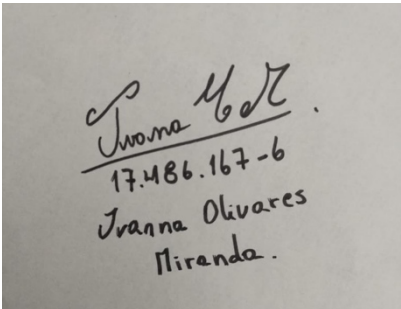 Ivana
17.486.167-6
Ivanna Olivares
Miranda.